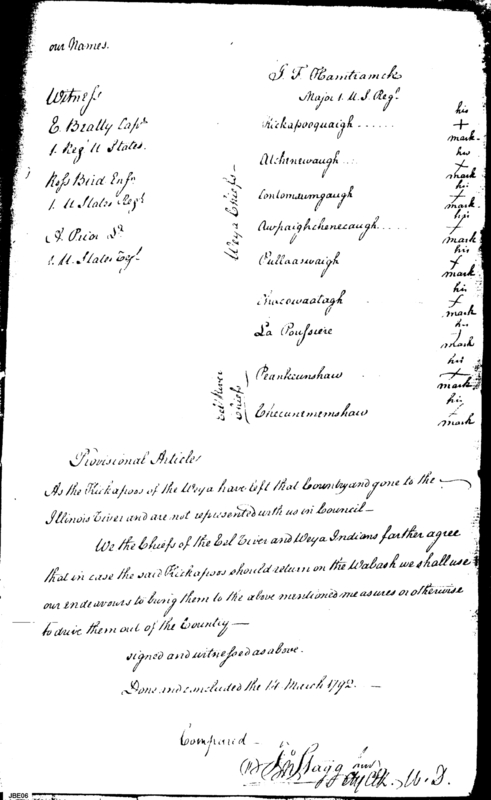 our Names.
J. F. Hamtramck
Major 1. U.S. Regt.
Witness
E. Beatty Capt.
1. Regt U States.
Ross Bird Ensn.
1. U States Regt
A. Prior Lt
1. U. States Regt.
Weya Chiefs
Kickapooquaigh ...... his + mark
Alchinewaugh ... his + mark
Contomsumgaugh his + mark
Awpaighchenecaugh .... his + mark
Pullaaswaigh his + mark
Chacowaatagh his + mark
La Poussiere his + mark
Eel River Chiefs
Peankeunshaw his + mark
Checunememshaw his + mark
Provisional Article
As the Kickapoos of the Weya have left that Country and gone to the
Illinois River and are not represented with us in Council —
We the Chiefs of the Eel River and Weya Indians farther agree
that in case the said Kickapoos should return on the Wabash we shall use
our endeavours to bring them to the above mentioned measures or otherwise
to drive them out of the Country —
signed and witnessed as above.
Done and concluded the 14 March 1792. —
Compared —
Jno Stagg Junr
Chf Clk. W. D.
JBE06